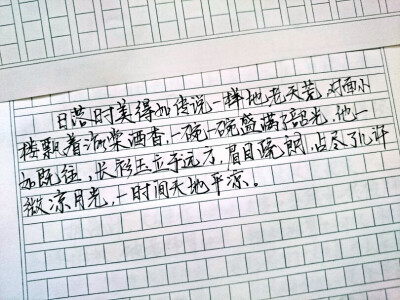 日落时美得如传说一样地老天荒,对面小
楼飘着浓浆酒香,一碗一碗盛满了韶光,他一
如既往,长衫玉立于远方,眉目疏朗,占尽了几许
微凉月光,一时间天地平凉。